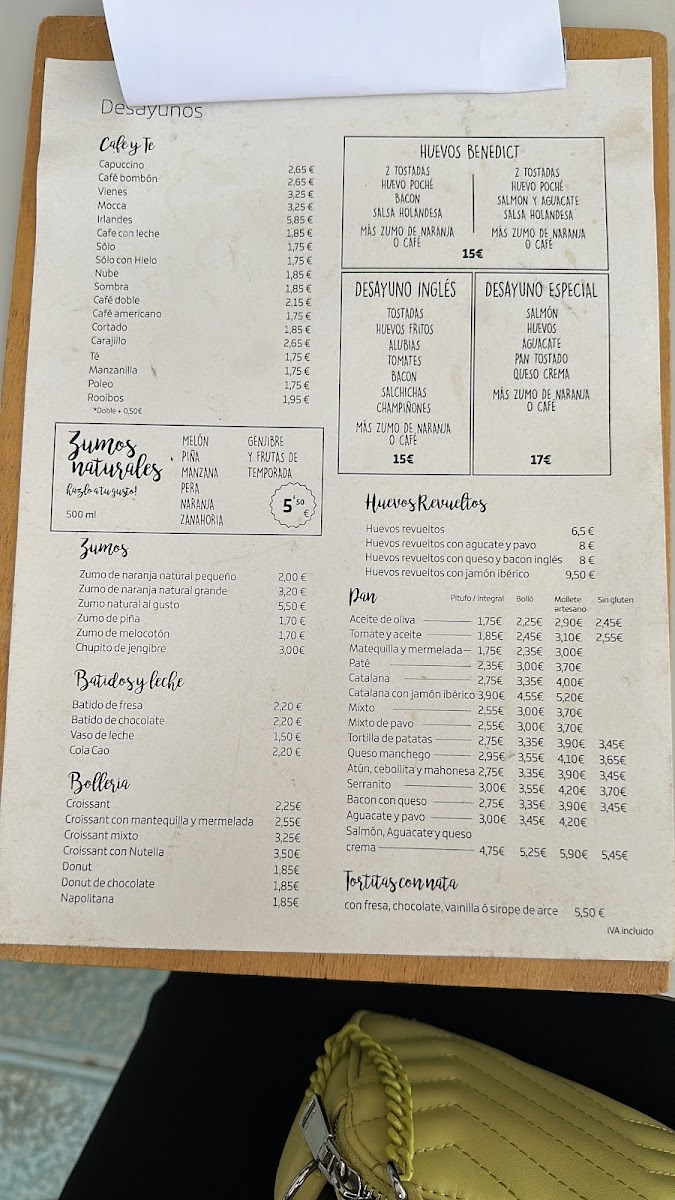 Desayunos
Café y Te
Capuccino 2,65 €
Café bombón 2,65 €
Vienes 3,25 €
Mocca 3,25 €
Irlandes 5,85 €
Cafe con leche 1,85 €
Sólo 1,75 €
Sólo con Hielo 1,75 €
Nube 1,85 €
Sombra 1,85 €
Café doble 2,15 €
Café americano 1,75 €
Cortado 1,85 €
Carajillo 2,65 €
Té 1,75 €
Manzanilla 1,75 €
Poleo 1,75 €
Rooibos 1,95 €
*Doble + 0,50€
Zumos
naturales
hazlo a tu gusto!
500 ml
MELÓN
PIÑA
MANZANA
PERA
NARANJA
ZANAHORIA
GENJIBRE
Y FRUTAS DE
TEMPORADA
5'50 €
Zumos
Zumo de naranja natural pequeño 2,00 €
Zumo de naranja natural grande 3,20 €
Zumo natural al gusto 5,50 €
Zumo de piña 1,70 €
Zumo de melocotón 1,70 €
Chupito de jengibre 3,00€
Batidos y leche
Batido de fresa 2,20 €
Batido de chocolate 2,20 €
Vaso de leche 1,50 €
Cola Cao 2,20 €
Bolleria
Croissant 2,25€
Croissant con mantequilla y mermelada 2,55€
Croissant mixto 3,25€
Croissant con Nutella 3,50€
Donut 1,85€
Donut de chocolate 1,85€
Napolitana 1,85€
HUEVOS BENEDICT
2 TOSTADAS
HUEVO POCHÉ
BACON
SALSA HOLANDESA
MÁS ZUMO DE NARANJA
O CAFÉ
2 TOSTADAS
HUEVO POCHÉ
SALMON Y AGUACATE
SALSA HOLANDESA
MÁS ZUMO DE NARANJA
O CAFÉ
15€
DESAYUNO INGLÉS
TOSTADAS
HUEVOS FRITOS
ALUBIAS
TOMATES
BACON
SALCHICHAS
CHAMPIÑONES
MÁS ZUMO DE NARANJA
O CAFÉ
15€
DESAYUNO ESPECIAL
SALMÓN
HUEVOS
AGUACATE
PAN TOSTADO
QUESO CREMA
MÁS ZUMO DE NARANJA
O CAFÉ
17€
Huevos Revueltos
Huevos revueltos 6,5 €
Huevos revueltos con agucate y pavo 8 €
Huevos revueltos con queso y bacon inglés 8 €
Huevos revueltos con jamón ibérico 9,50 €
Pan Pitufo / integral Bolló Mollete artesano Sin gluten
Aceite de oliva 1,75€ 2,25€ 2,90€ 2,45€
Tomate y aceite 1,85€ 2,45€ 3,10€ 2,55€
Matequilla y mermelada 1,75€ 2,35€ 3,00€
Paté 2,35€ 3,00€ 3,70€
Catalana 2,75€ 3,35€ 4,00€
Catalana con jamón ibérico 3,90€ 4,55€ 5,20€
Mixto 2,55€ 3,00€ 3,70€
Mixto de pavo 2,55€ 3,00€ 3,70€
Tortilla de patatas 2,75€ 3,35€ 3,90€ 3,45€
Queso manchego 2,95€ 3,55€ 4,10€ 3,65€
Atún, cebollita y mahonesa 2,75€ 3,35€ 3,90€ 3,45€
Serranito 3,00€ 3,55€ 4,20€ 3,70€
Bacon con queso 2,75€ 3,35€ 3,90€ 3,45€
Aguacate y pavo 3,00€ 3,45€ 4,20€
Salmón, Aguacate y queso
crema 4,75€ 5,25€ 5,90€ 5,45€
Tortitas con nata
con fresa, chocolate, vainilla ó sirope de arce 5,50 €
IVA incluido